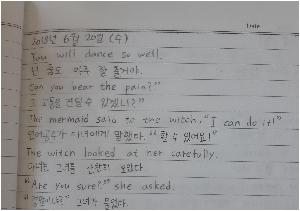 Date
2018년 6월 20일 (수)
You will dance so well.
넌 춤도 아주 잘 출거야.
Can you bear the pain?"
그 고통을 견딜 수 있겠니?"
The mermaid said to the witch, "I can do it!"
인어공주가 마녀에게 말했다. "할 수 있어요!"
The witch looked at her carefully.
마녀는 그녀를 보았다
"Are you sure?" she asked.
"정말이니?" 그녀가 물었다.